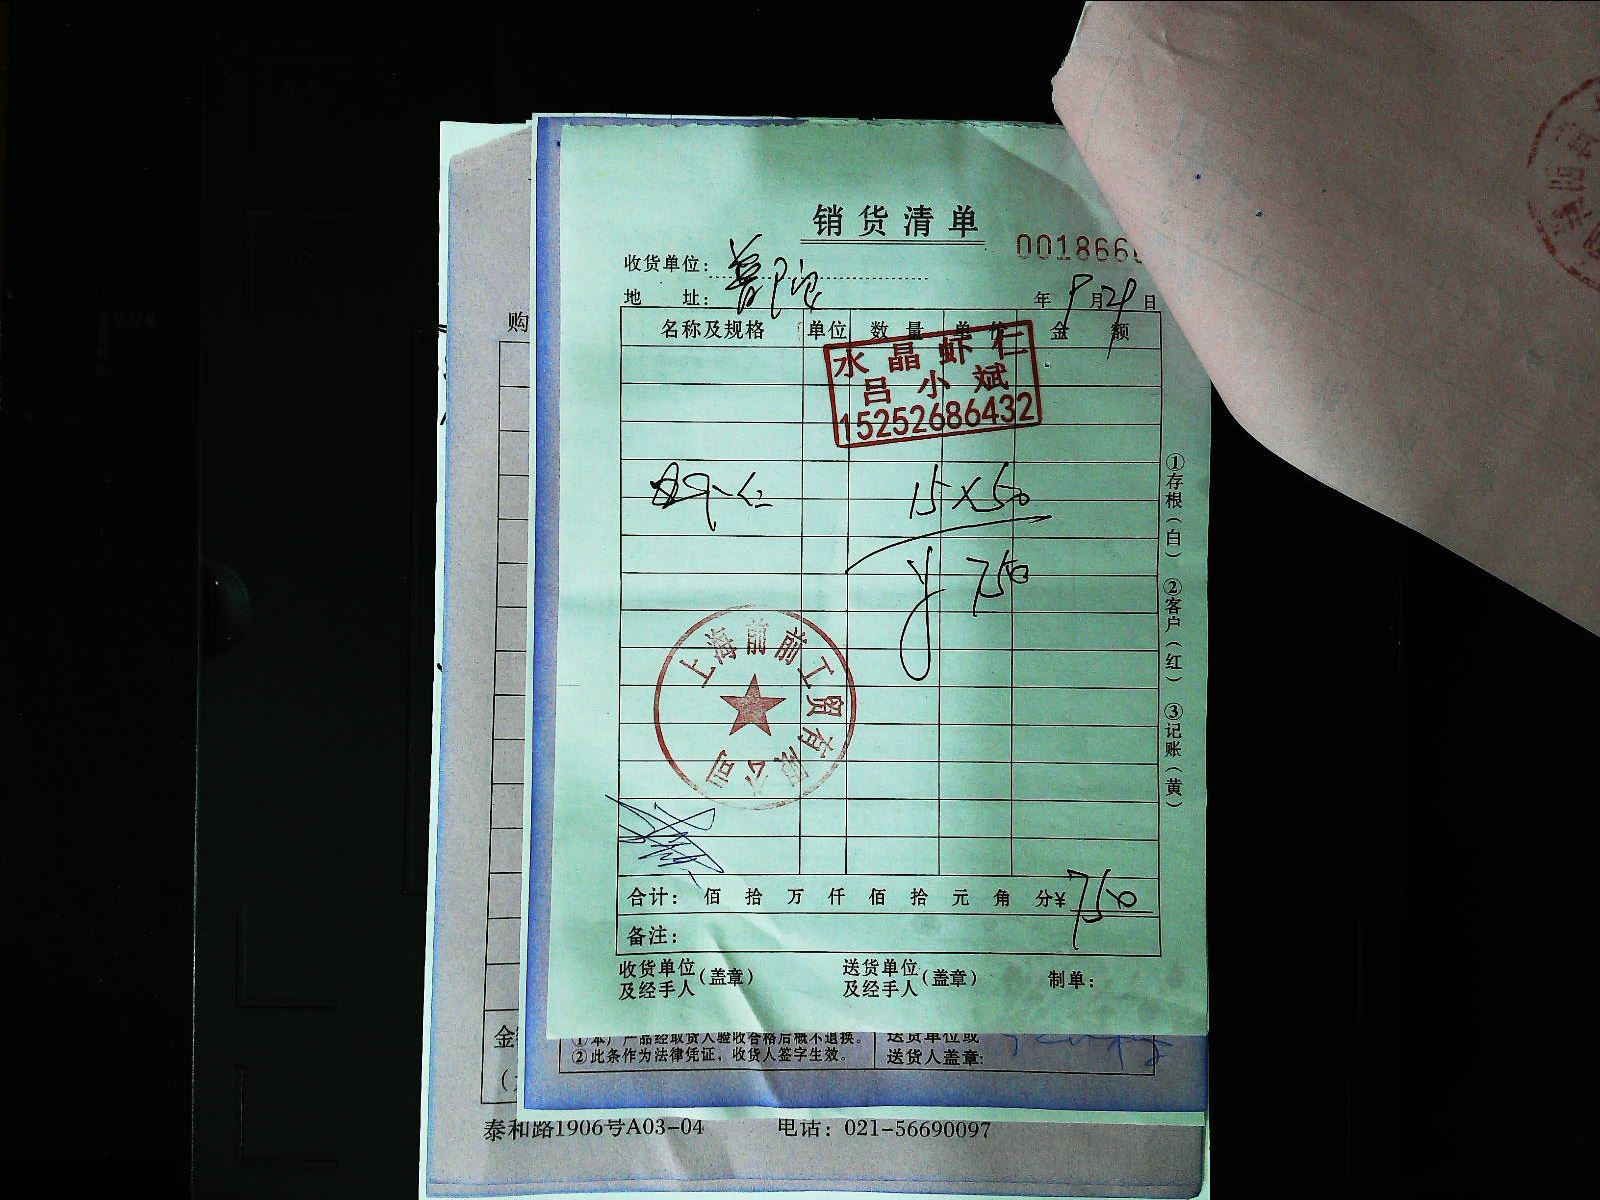 销货清单
001866
收货单位：
地 址： 年 9月29日
名称及规格 单位 数量 单价 金额
水晶虾仁
吕小斌
15252686432
虾仁 15×50
¥ 750
上海前前工贸有限公司
合计： 佰 拾 万 仟 佰 拾 元 角 分¥ 750
备注：
收货单位及经手人（盖章） 送货单位及经手人（盖章） 制单：
①存根（白） ②客户（红） ③记账（黄）
购
金
①本厂产品经取货人验收合格后概不退换。
②此条作为法律凭证，收货人签字生效。
送货单位或
送货人盖章：
泰和路1906号A03-04 电话：021-56690097